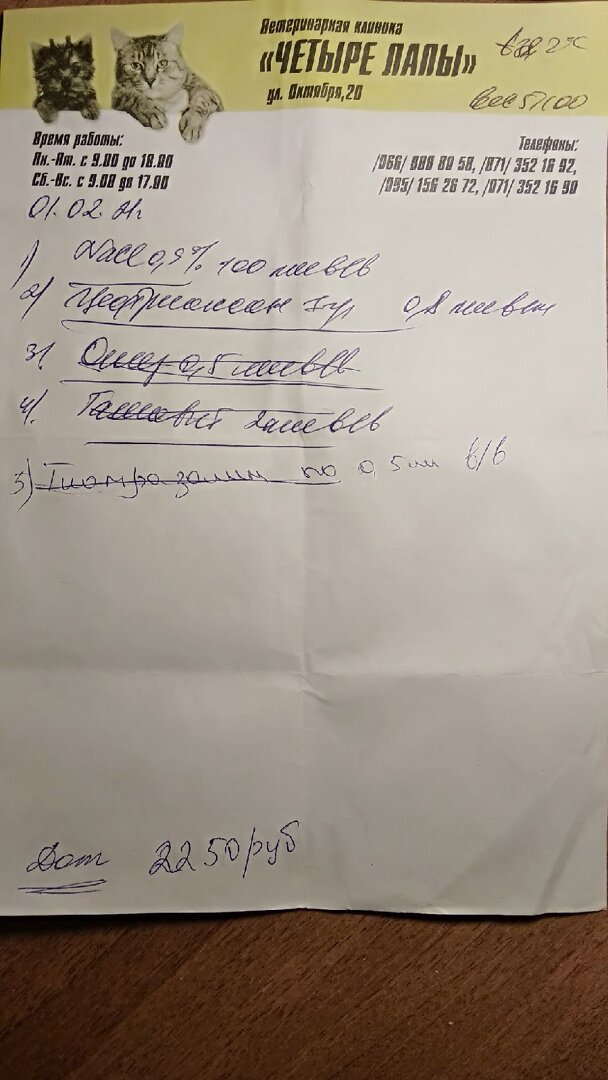 Ветеринарная клиника
«ЧЕТЫРЕ ЛАПЫ»
ул. Октября,20
вес 5,100
Время работы:
Пн.-Пт. с 9.00 до 18.00
Сб.-Вс. с 9.00 до 17.00
Телефоны:
/066/ 989 80 58, /071/ 352 16 92,
/095/ 156 26 72, /071/ 352 16 90
01.02.21г
1) NaCl 0,9% 100 мл в/в
2) Цефтриаксон 1 гр 0,8 мл в/м
3) 0,5 мл в/в
4) 2 мл в/в
5) Тиотриазолин по 0,5 мл в/в
2250 руб